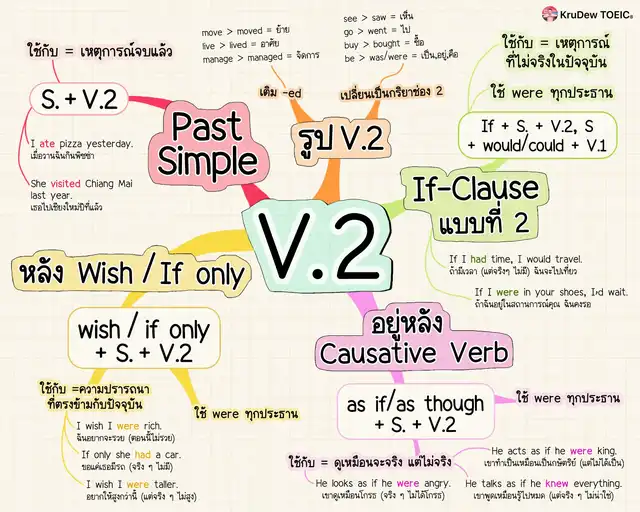 KruDew TOEIC®
V.2
Past
Simple
S. + V.2
ใช้กับ = เหตุการณ์จบแล้ว
I ate pizza yesterday.
เมื่อวานฉันกินพิซซ่า
She visited Chiang Mai
last year.
เธอไปเชียงใหม่ปีที่แล้ว
รูป V.2
เติม -ed
move > moved = ย้าย
live > lived = อาศัย
manage > managed = จัดการ
เปลี่ยนเป็นกริยาช่อง 2
see > saw = เห็น
go > went = ไป
buy > bought = ซื้อ
be > was/were = เป็น,อยู่,คือ
If-Clause
แบบที่ 2
If + S. + V.2, S
+ would/could + V.1
ใช้กับ = เหตุการณ์
ที่ไม่จริงในปัจจุบัน
ใช้ were ทุกประธาน
If I had time, I would travel.
ถ้ามีเวลา (แต่จริงๆ ไม่มี) ฉันจะไปเที่ยว
If I were in your shoes, I›d wait.
ถ้าฉันอยู่ในสถานการณ์คุณ ฉันคงรอ
หลัง Wish / If only
wish / if only
+ S. + V.2
ใช้กับ =ความปรารถนา
ที่ตรงข้ามกับปัจจุบัน
ใช้ were ทุกประธาน
I wish I were rich.
ฉันอยากจะรวย (ตอนนี้ไม่รวย)
If only she had a car.
ขอแค่เธอมีรถ (จริง ๆ ไม่มี)
I wish I were taller.
อยากให้สูงกว่านี้ (แต่จริง ๆ ไม่สูง)
อยู่หลัง
Causative Verb
as if/as though
+ S. + V.2
ใช้ were ทุกประธาน
ใช้กับ = ดูเหมือนจะจริง แต่ไม่จริง
He acts as if he were king.
เขาทำเป็นเหมือนเป็นกษัตริย์ (แต่ไม่ได้เป็น)
He looks as if he were angry.
เขาดูเหมือนโกรธ (จริง ๆ ไม่ได้โกรธ)
He talks as if he knew everything.
เขาพูดเหมือนรู้ไปหมด (แต่จริง ๆ ไม่น่าใช่)